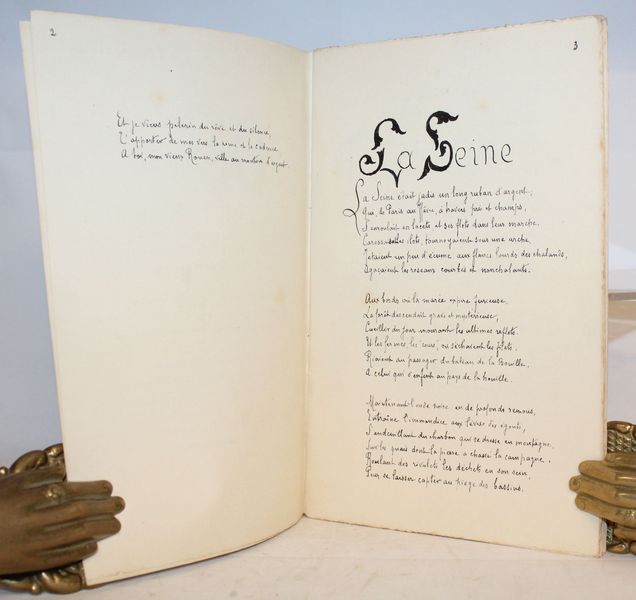 2
Et je viens pelerin du rêve et du silence,
T'apporter de mes vers la rime et la cadence
A toi, mon vieux Rouen, ville au manteau d'argent
3
La Seine
La Seine était jadis un long ruban d'argent;
Qui, de Paris au Hâvre, à travers prés et champs,
S'enroulait en lacets et ses flots dans leur marche
Caressaient les ilots, tournoyaient sous une arche,
Jetaient un peu d'écume aux flancs lourds des chalands,
Agaçaient les roseaux courbés et nonchalants.
Aux bords où la marée expire furieuse
La forêt descendait grave et mysterieuse,
Cueillir du jour mourant les ultimes reflets.
Et les fermes, les "cours", où séchaient les filets.
Riaient au passager du bateau de la Bouille,
A celui qui s'enfuit au pays de la houille.
Maintenant l'onde noire en de profonds remous,
Entraîne l'immondice aux lèvres des egouts,
S'endeuillant du charbon qui se dresse en montagne
Sur les quais dont la pierre a chassé la campagne.
Roulant des rivelets les déchets en son sein,
Pour se laisser capter au piège des bassins.